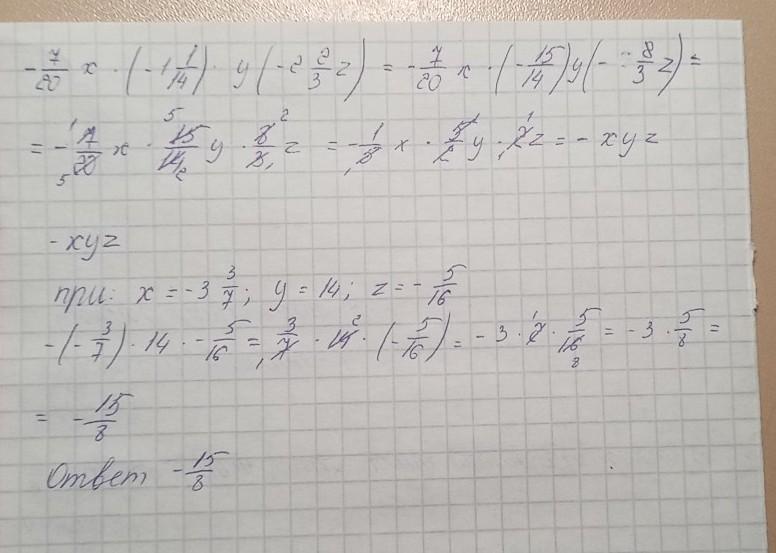 -7/20 x · (-1 1/14) · y (-2 2/3 z) = -7/20 x · (-15/14) y (- 8/3 z) =
= - 7/20 x · 15/14 y · 8/3 z = -1/5 x · 5/2 y · 2 z = - xyz
-xyz
при: x = -3 3/7; y = 14; z = - 5/16
-(-3/7) · 14 · - 5/16 = 3/7 · 14 · (-5/16) = -3 · 2 · 5/16 = -3 · 5/8 =
= -15/8
Ответ -15/8